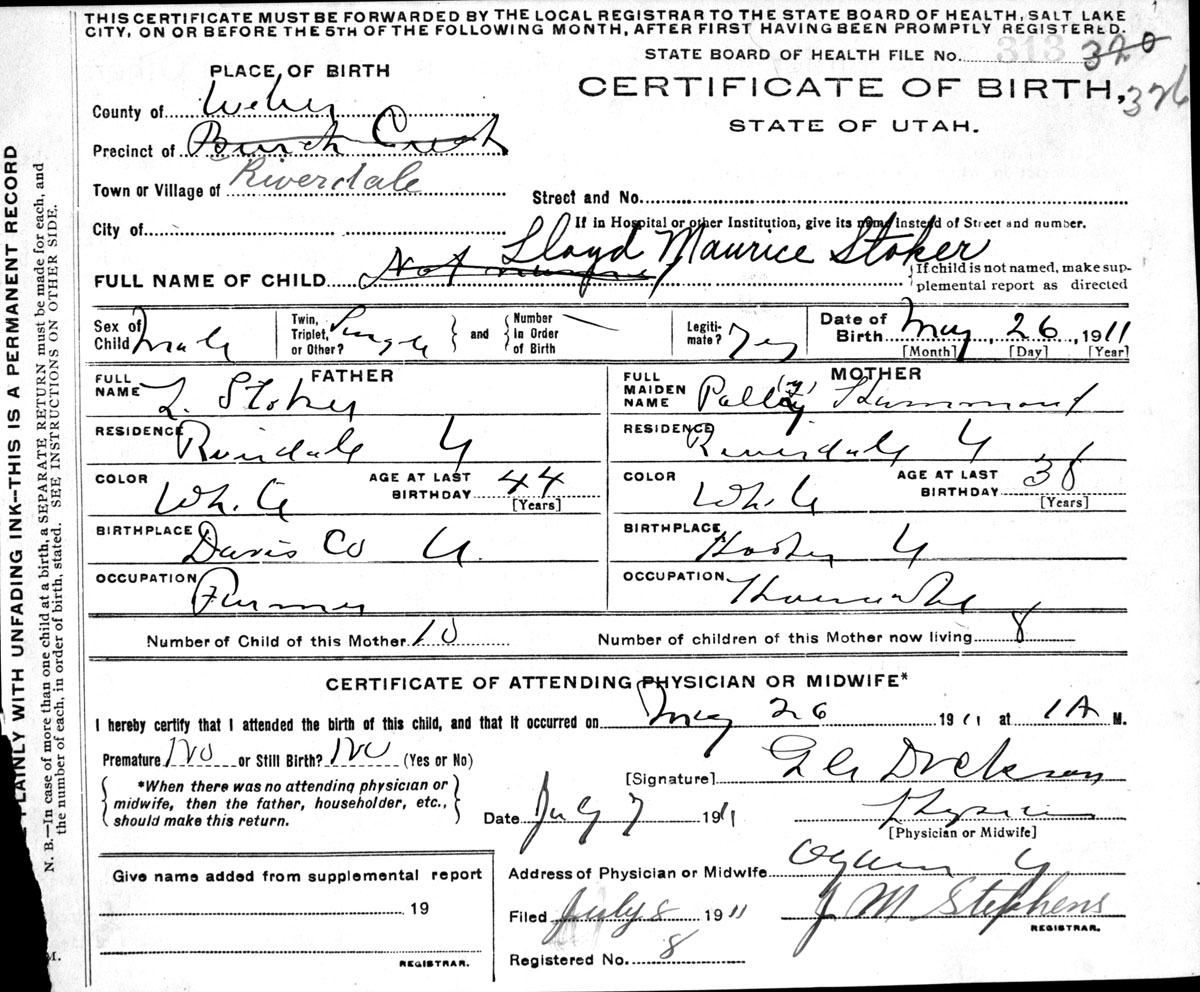 THIS CERTIFICATE MUST BE FORWARDED BY THE LOCAL REGISTRAR TO THE STATE BOARD OF HEALTH, SALT LAKE
CITY, ON OR BEFORE THE 5TH OF THE FOLLOWING MONTH, AFTER FIRST HAVING BEEN PROMPTLY REGISTERED.
STATE BOARD OF HEALTH FILE No. 313 320
326
PLACE OF BIRTH
CERTIFICATE OF BIRTH,
STATE OF UTAH.
County of Weber
Precinct of Burch Creek
Town or Village of Riverdale
Street and No.
City of
If in Hospital or other Institution, give its name instead of Street and number.
Lloyd Maurice Stoker
FULL NAME OF CHILD Not
If child is not named, make sup-
plemental report as directed
Sex of Child Male
Twin, Triplet, or Other? Single
and
Number in Order of Birth
Legiti-mate? Yes
Date of Birth May 26, 1911
[Month] [Day] [Year]
FATHER
FULL NAME L. Stoker
RESIDENCE Riverdale U
COLOR White
AGE AT LAST BIRTHDAY 44
[Years]
BIRTHPLACE Davis Co U.
OCCUPATION Farmer
MOTHER
FULL MAIDEN NAME Hammond
RESIDENCE Riverdale U
COLOR White
AGE AT LAST BIRTHDAY 38
[Years]
BIRTHPLACE Hooper U
OCCUPATION Housewife
Number of Child of this Mother 10
Number of children of this Mother now living 8
CERTIFICATE OF ATTENDING PHYSICIAN OR MIDWIFE*
I hereby certify that I attended the birth of this child, and that it occurred on May 26 1911 at 1 A M.
Premature No or Still Birth? No (Yes or No)
*When there was no attending physician or
midwife, then the father, householder, etc.,
should make this return.
[Signature] Dickson
Date July 7 1911
Physician
[Physician or Midwife]
Address of Physician or Midwife Ogden U
Filed July 8 1911
J M Stephens
REGISTRAR.
Registered No. 8
Give name added from supplemental report
19
REGISTRAR.
PLAINLY WITH UNFADING INK--THIS IS A PERMANENT RECORD
N. B.—In case of more than one child at a birth, a SEPARATE RETURN must be made for each, and
the number of each, in order of birth, stated. SEE INSTRUCTIONS ON OTHER SIDE.